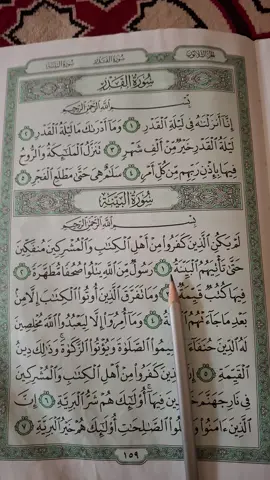 سُورَةُ القَدْرِ
بِسْمِ اللَّهِ الرَّحْمَٰنِ الرَّحِيمِ
إِنَّا أَنْزَلْنَاهُ فِي لَيْلَةِ الْقَدْرِ ١ وَمَا أَدْرَاكَ مَا لَيْلَةُ الْقَدْرِ ٢
لَيْلَةُ الْقَدْرِ خَيْرٌ مِنْ أَلْفِ شَهْرٍ ٣ تَنَزَّلُ الْمَلَائِكَةُ وَالرُّوحُ
فِيهَا بِإِذْنِ رَبِّهِمْ مِنْ كُلِّ أَمْرٍ ٤ سَلَامٌ هِيَ حَتَّى مَطْلَعِ الْفَجْرِ ٥
سُورَةُ البَيِّنَةِ
بِسْمِ اللَّهِ الرَّحْمَٰنِ الرَّحِيمِ
لَمْ يَكُنِ الَّذِينَ كَفَرُوا مِنْ أَهْلِ الْكِتَابِ وَالْمُشْرِكِينَ مُنْفَكِّينَ
حَتَّى تَأْتِيَهُمُ الْبَيِّنَةُ ١ رَسُولٌ مِنَ اللَّهِ يَتْلُو صُحُفًا مُطَهَّرَةً ٢
فِيهَا كُتُبٌ قَيِّمَةٌ ٣ وَمَا تَفَرَّقَ الَّذِينَ أُوتُوا الْكِتَابَ إِلَّا مِنْ
بَعْدِ مَا جَاءَتْهُمُ ٤ وَمَا أُمِرُوا إِلَّا لِيَعْبُدُوا اللَّهَ مُخْلِصِينَ
لَهُ الدِّينَ حُنَفَاءَ الصَّلَاةَ وَيُؤْتُوا الزَّكَاةَ وَذَلِكَ دِينُ
الْقَيِّمَةِ ٥ إِنَّ الَّذِينَ كَفَرُوا مِنْ أَهْلِ الْكِتَابِ وَالْمُشْرِكِينَ
فِي نَارِ جَهَنَّمَ فِيهَا أُولَئِكَ هُمْ شَرُّ الْبَرِيَّةِ ٦ إِنَّ
الَّذِينَ آمَنُوا الصَّالِحَاتِ أُولَئِكَ هُمْ خَيْرُ الْبَرِيَّةِ ٧
١٥٩